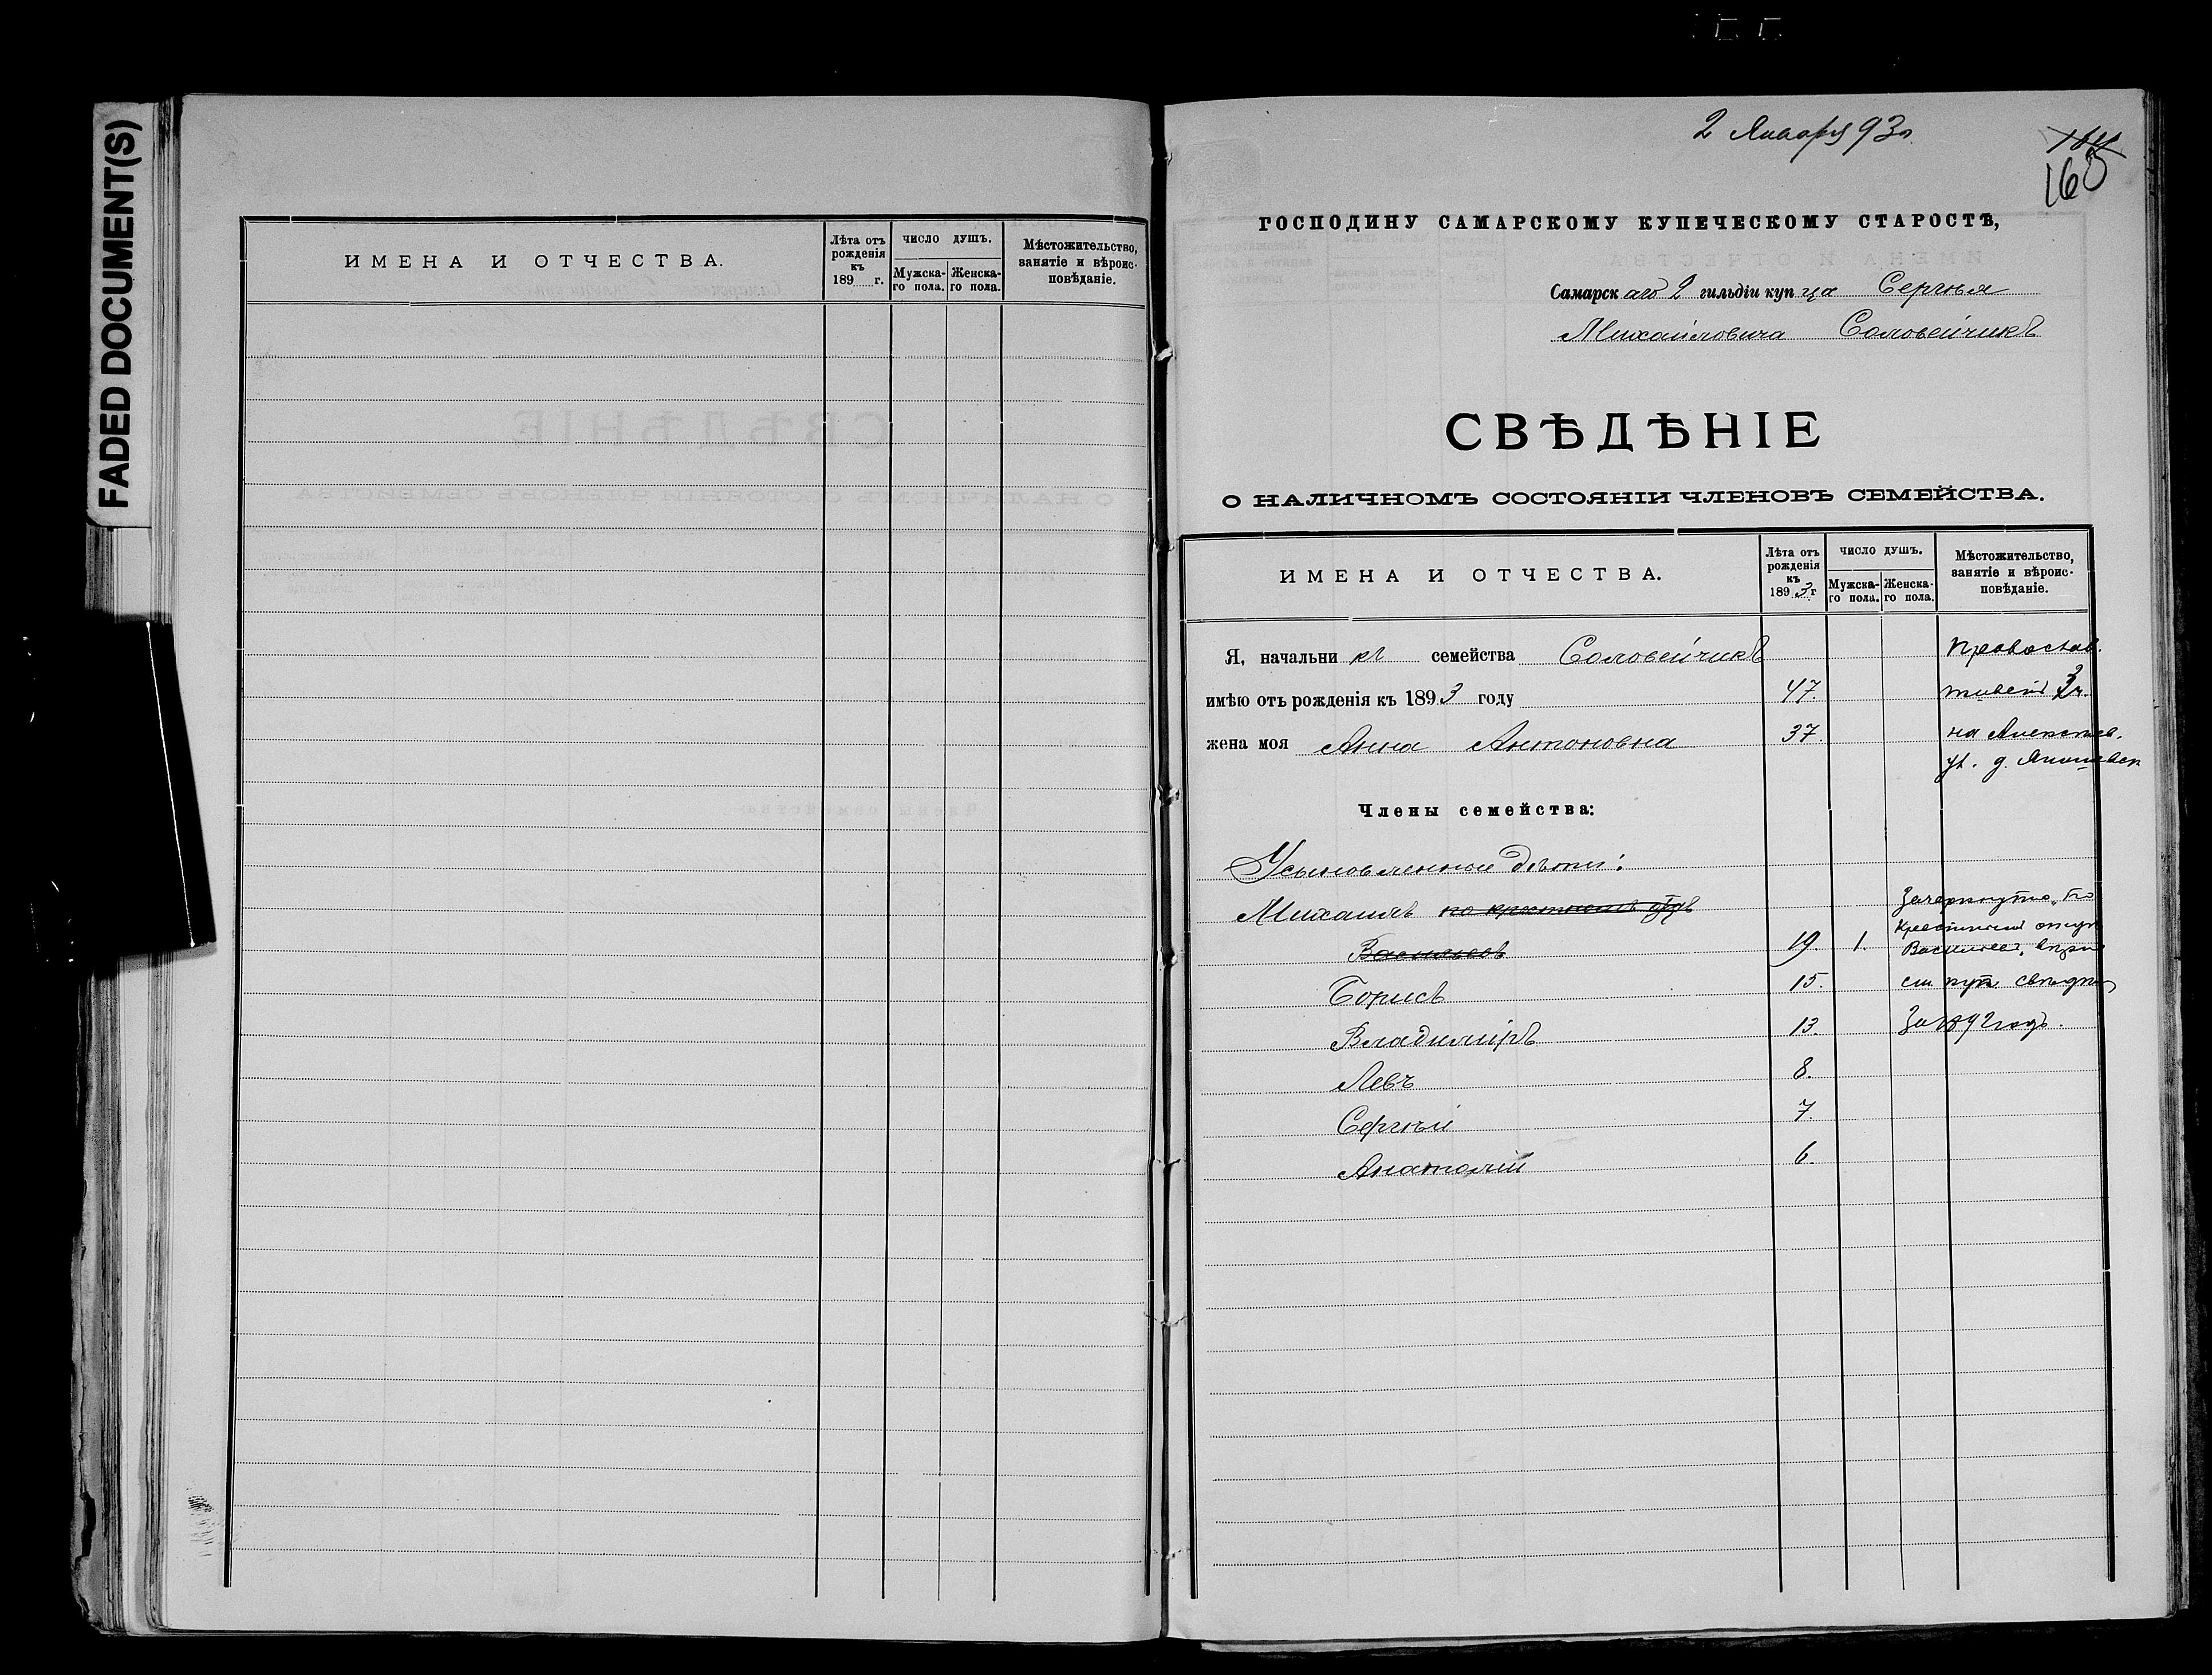 FADED DOCUMENT(S)
ИМЕНА И ОТЧЕСТВА.
Лѣта отъ рожденія къ 189 г.
ЧИСЛО ДУШЪ.
Мужска-го пола.
Женска-го пола.
Мѣстожительство, занятіе и вѣроис-повѣданіе.
2 Января 93 г.
160
ГОСПОДИНУ САМАРСКОМУ КУПЕЧЕСКОМУ СТАРОСТѢ,
Самарскаго 2 гильдіи купца Сергѣя
Михайловича Соловейчикъ
СВѢДѢНІЕ
О НАЛИЧНОМЪ СОСТОЯНІИ ЧЛЕНОВЪ СЕМЕЙСТВА.
ИМЕНА И ОТЧЕСТВА.
Лѣта отъ рожденія къ 1893 г
ЧИСЛО ДУШЪ.
Мужска-го пола.
Женска-го пола.
Мѣстожительство, занятіе и вѣроис-повѣданіе.
Я, начальникъ семейства Соловейчикъ Православ.
имѣю отъ рожденія къ 1893 году 47. 3 ч.
жена моя Анна Антоновна 37. на
ул. д.
Члены семейства:
Усыновленные дѣти:
Михаилъ по крестному отцу Зачеркнуто „по
крестному отцу
Васильевъ 19. 1. Васильевъ,
Борисъ 15. см.
Владиміръ 13. За 1892 годъ.
Левъ 8.
Сергѣй 7.
Анатолій 6.